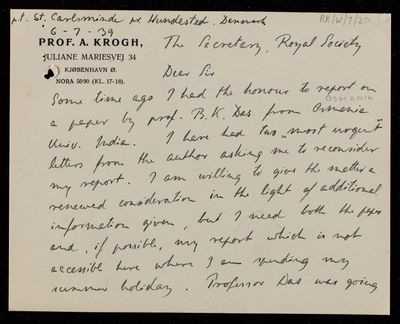 p.t. St. Carlsminde pr. Hundested. Denmark
RR/W/7/20
6-7-39
PROF. A. KROGH,
JULIANE MARIESVEJ 34
KJØBENHAVN Ø.
NORA 5090 (KL. 17-18).
The Secretary, Royal Society
Dear Sir
Some time ago I had the honour to report on
OSMANIA
a paper by prof. B.K. Das from Osmania
Univ. India. I have had two "most urgent"
letters from the author asking me to reconsider
my report. I am willing to give the matter a
renewed consideration in the light of additional
information given, but I need both the paper
and, if possible, my report which is not
accessible here where I am spending my
summer holiday. Professor Das was going